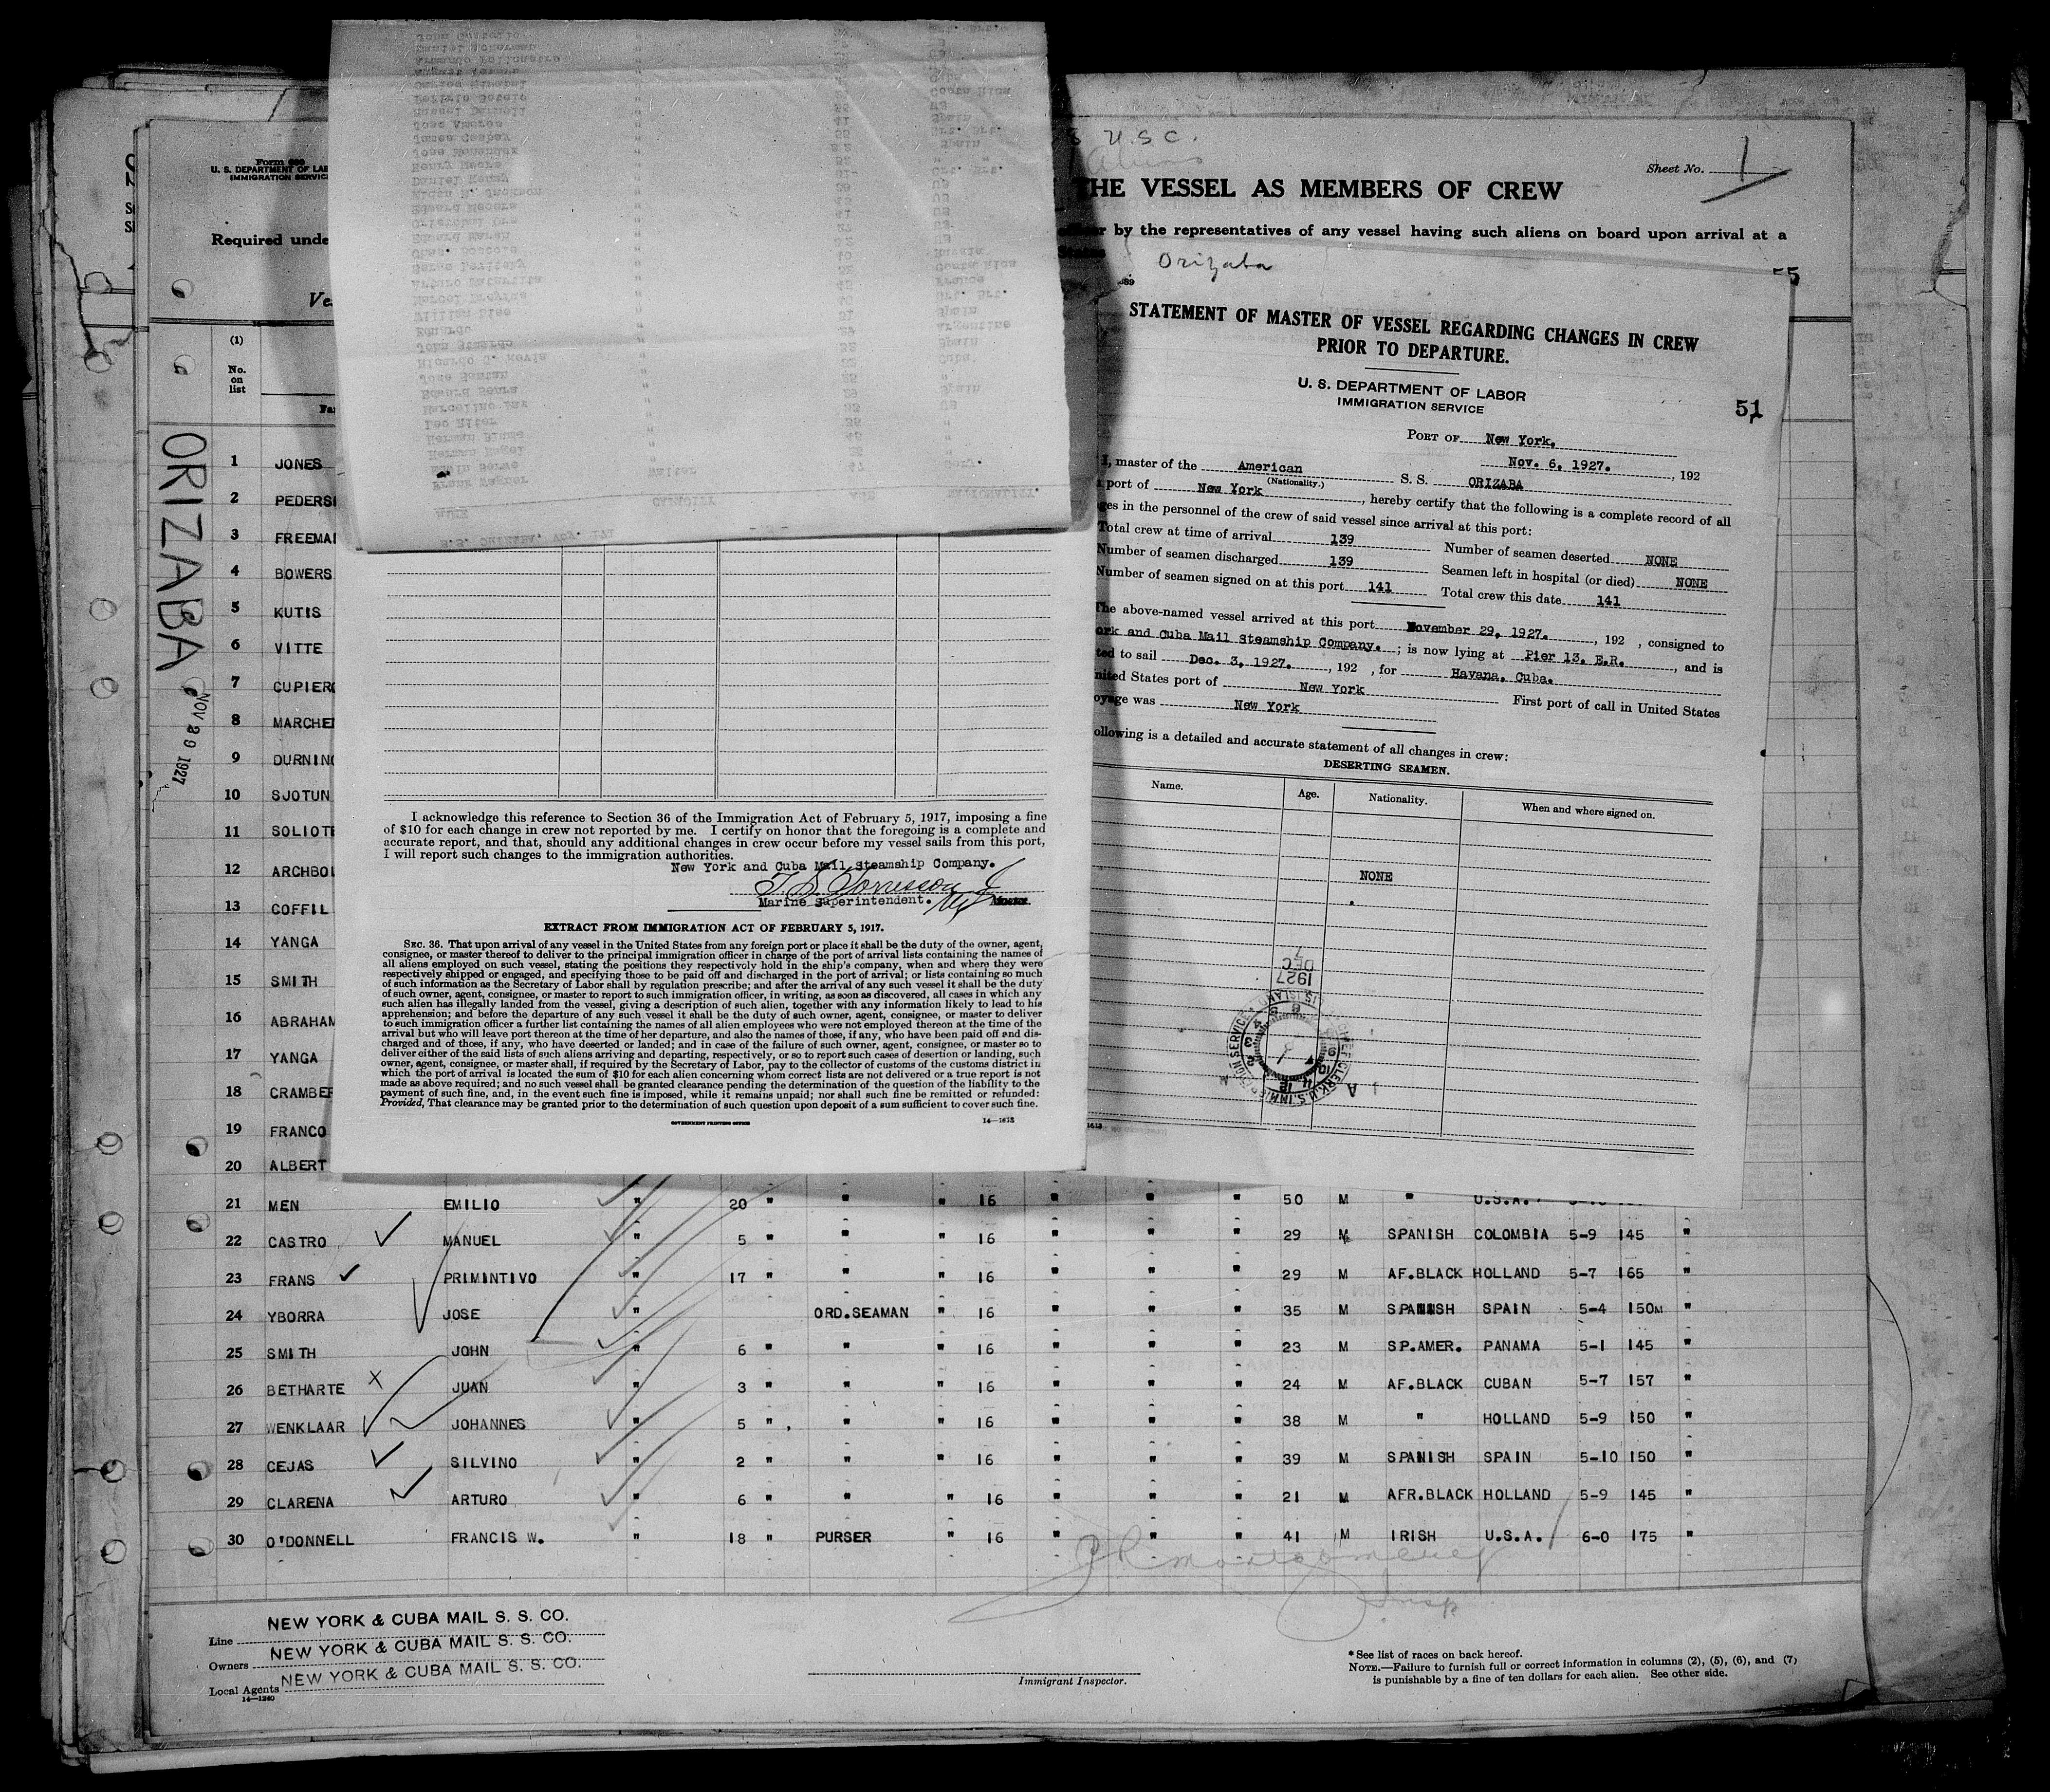 8 U.S.C.
Aliens
Sheet No. 1
Form 689
U. S. DEPARTMENT OF LA
IMMIGRATION SERVIC
THE VESSEL AS MEMBERS OF CREW
Required unde
r by the representatives of any vessel having such aliens on board upon arrival at a
Orizaba
689
55
Ve
STATEMENT OF MASTER OF VESSEL REGARDING CHANGES IN CREW
PRIOR TO DEPARTURE.
U. S. DEPARTMENT OF LABOR
IMMIGRATION SERVICE
51
PORT OF New York.
Nov. 6, 1927. , 192
I, master of the American S. S. ORIZABA
(Nationality.)
port of New York , hereby certify that the following is a complete record of all
ges in the personnel of the crew of said vessel since arrival at this port:
Total crew at time of arrival 139 Number of seamen deserted NONE
Number of seamen discharged 139 Seamen left in hospital (or died) NONE
Number of seamen signed on at this port 141 Total crew this date 141
The above-named vessel arrived at this port November 29, 1927. , 192 , consigned to
ork and Cuba Mail Steamship Company. ; is now lying at Pier 13. E.R. , and is
ted to sail Dec. 3, 1927. , 192 , for Havana, Cuba.
nited States port of New York First port of call in United States
oyage was New York
ollowing is a detailed and accurate statement of all changes in crew:
DESERTING SEAMEN.
Name. Age. Nationality. When and where signed on.
NONE
DEC 7 1927
S.S. ORIZABA. Voy. 171 - 2 -
NAME CAPACITY AGE NATIONALITY.
Frank Wagner Waiter 47 Germ.
Herman Nagel
Herman Blume
Leo Ritter
Marcelino Rey
Edward Soura 29 Spain
Jose Santar
Ricardo C. Kevia
Eduardo
Arturo Matarrita
Edward Marsh
Daniel Kenny
Jose Menendez
I acknowledge this reference to Section 36 of the Immigration Act of February 5, 1917, imposing a fine
of $10 for each change in crew not reported by me. I certify on honor that the foregoing is a complete and
accurate report, and that, should any additional changes in crew occur before my vessel sails from this port,
I will report such changes to the immigration authorities.
New York and Cuba Mail Steamship Company.
Marine Superintendent. Master.
EXTRACT FROM IMMIGRATION ACT OF FEBRUARY 5, 1917.
SEC. 36. That upon arrival of any vessel in the United States from any foreign port or place it shall be the duty of the owner, agent,
consignee, or master thereof to deliver to the principal immigration officer in charge of the port of arrival lists containing the names of
all aliens employed on such vessel, stating the positions they respectively hold in the ship's company, when and where they were
respectively shipped or engaged, and specifying those to be paid off and discharged in the port of arrival; or lists containing so much
of such information as the Secretary of Labor shall by regulation prescribe; and after the arrival of any such vessel it shall be the duty
of such owner, agent, consignee, or master to report to such immigration officer, in writing, as soon as discovered, all cases in which any
such alien has illegally landed from the vessel, giving a description of such alien, together with any information likely to lead to his
apprehension; and before the departure of any such vessel it shall be the duty of such owner, agent, consignee, or master to deliver
to such immigration officer a further list containing the names of all alien employees who were not employed thereon at the time of the
arrival but who will leave port thereon at the time of her departure, and also the names of those, if any, who have been paid off and dis-
charged and of those, if any, who have deserted or landed; and in case of the failure of such owner, agent, consignee, or master so to
deliver either of the said lists of such aliens arriving and departing, respectively, or so to report such cases of desertion or landing, such
owner, agent, consignee, or master shall, if required by the Secretary of Labor, pay to the collector of customs of the customs district in
which the port of arrival is located the sum of $10 for each alien concerning whom correct lists are not delivered or a true report is not
made as above required; and no such vessel shall be granted clearance pending the determination of the question of the liability to the
payment of such fine, and, in the event such fine is imposed, while it remains unpaid; nor shall such fine be remitted or refunded:
Provided, That clearance may be granted prior to the determination of such question upon deposit of a sum sufficient to cover such fine.
GOVERNMENT PRINTING OFFICE 14—1613
ORIZABA
NOV 29 1927
(1)
No. on list
Fa
1 JONES
2 PEDERS
3 FREEMA
4 BOWERS
5 KUTIS
6 VITTE
7 CUPIER
8 MARCHE
9 DURNIN
10 SJOTUN
11 SOLIOT
12 ARCHBO
13 COFFIL
14 YANGA
15 SMITH
16 ABRAHAM
17 YANGA
18 CRAMBE
19 FRANCO
20 ALBERT
21 MEN EMILIO " 20 " " " 16 " " " 50 M " U.S.A.
22 CASTRO MANUEL " 5 " " " 16 " " " 29 M SPANISH COLOMBIA 5-9 145 "
23 FRANS PRIMINTIVO " 17 " " " 16 " " " 29 M AF.BLACK HOLLAND 5-7 165 "
24 YBORRA JOSE " ORD.SEAMAN " 16 " " " 35 M SPANISH SPAIN 5-4 150 "
25 SMITH JOHN " 6 " " " 16 " " " 23 M SP.AMER. PANAMA 5-1 145 "
26 BETHARTE X JUAN " 3 " " " 16 " " " 24 M AF.BLACK CUBAN 5-7 157 "
27 WENKLAAR JOHANNES " 5 " " " 16 " " " 38 M " HOLLAND 5-9 150 "
28 CEJAS SILVINO " 2 " " " 16 " " " 39 M SPANISH SPAIN 5-10 150 "
29 CLARENA ARTURO " 6 " " " 16 " " " 21 M AFR.BLACK HOLLAND 5-9 145 "
30 O'DONNELL FRANCIS W. " 18 " PURSER " 16 " " " 41 M IRISH U.S.A. 6-0 175 "
Montgomery
Insp
Line NEW YORK & CUBA MAIL S. S. CO.
Owners NEW YORK & CUBA MAIL S. S. CO.
Local Agents NEW YORK & CUBA MAIL S. S. CO.
14—1240
Immigrant Inspector.
* See list of races on back hereof.
NOTE.—Failure to furnish full or correct information in columns (2), (5), (6), and (7)
is punishable by a fine of ten dollars for each alien. See other side.